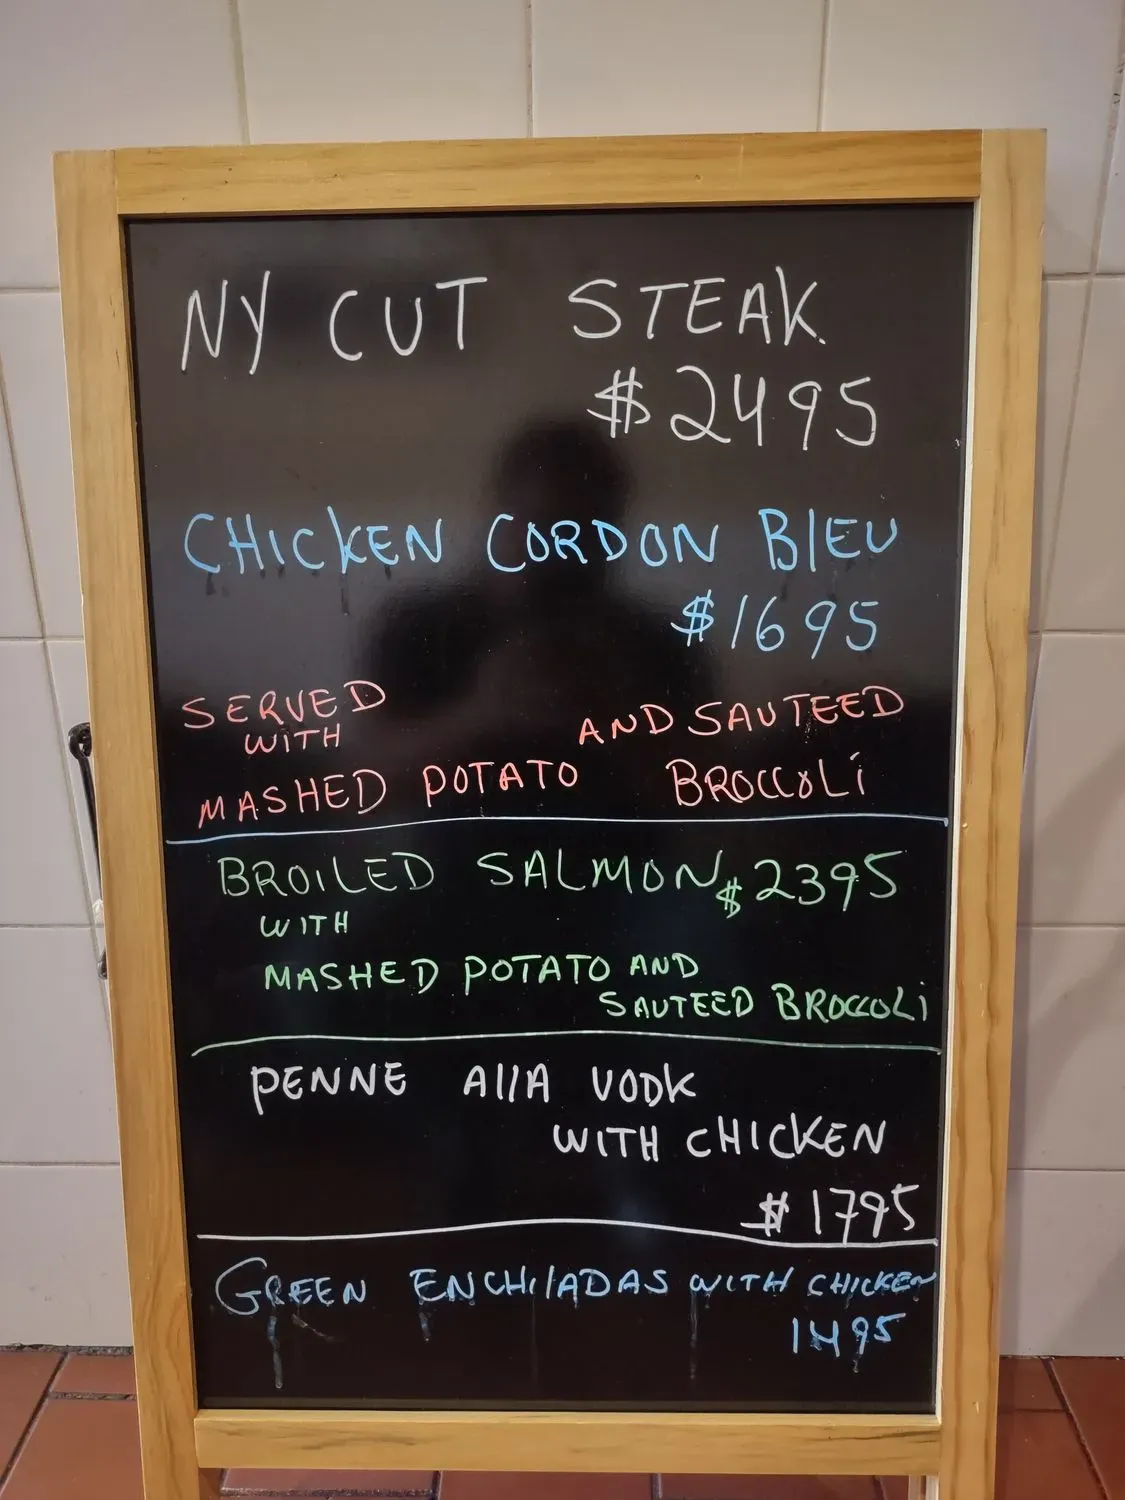 NY CUT STEAK
$2495
CHICKEN CORDON BLEU
$1695
SERVED
WITH
MASHED POTATO
AND SAUTEED
BROCCOLI
BROILED SALMON $2395
WITH
MASHED POTATO AND
SAUTEED BROCCOLI
PENNE AllA VODK
WITH CHICKEN
$1795
GREEN ENCHILADAS WITH CHICKEN
1495